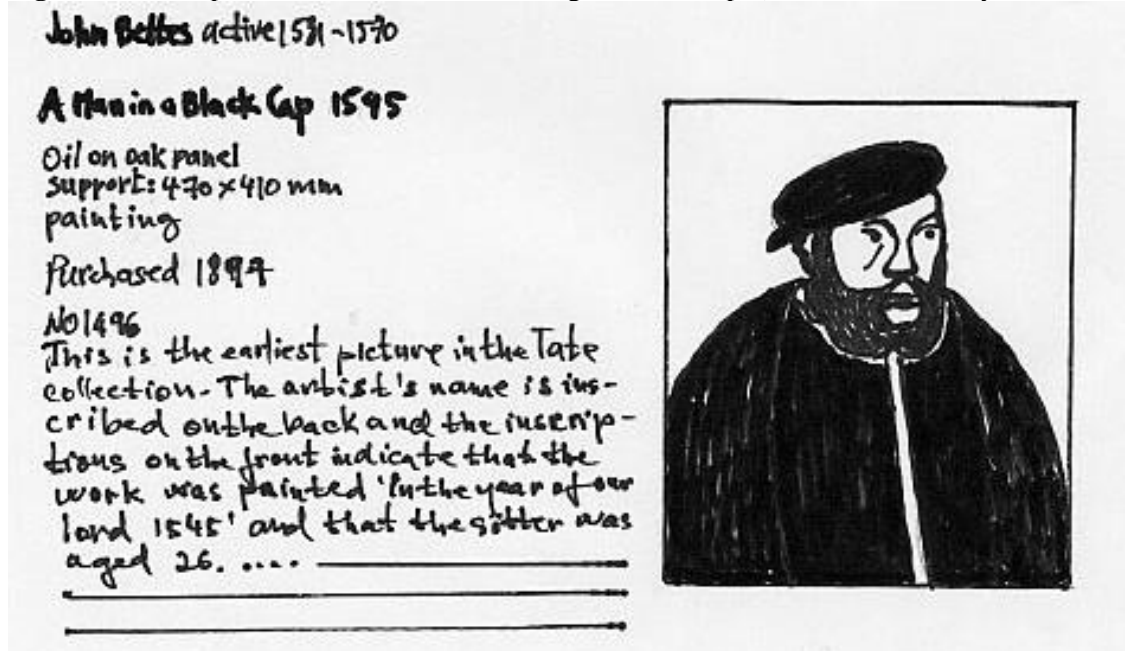 John Bettes active 1531-1570
A Man in a Black Cap 1595
Oil on oak panel
support: 470 x 410 mm
painting
Purchased 1897
NO1496
This is the earliest picture in the Tate
collection. The artist's name is ins-
cribed on the back and the inscrip-
tions on the front indicate that the
work was painted 'In the year of our
lord 1545' and that the sitter was
aged 26. ....